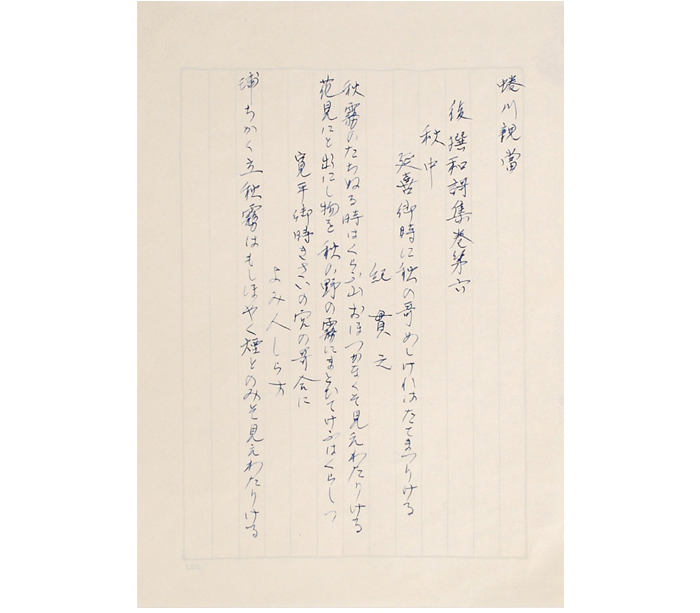 蜷川親當
後撰和謌集巻第六
秋中
延喜御時に秋の哥めしけれはたてまつりける
紀貫之
秋霧のたちぬる時はくらふ山おほつかなくそ見えわたりける
花見にと出にし物を秋の野の霧にまとひてけふはくらしつ
寛平御時きさいの宮の哥合に
よみ人しらす
浦ちかく立秋霧はもしほやく煙とのみそ見えわたりける